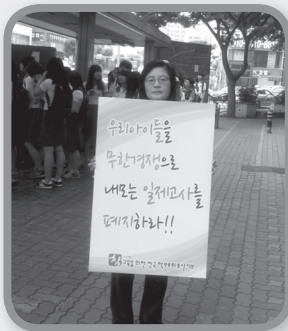 우리아이들을
무한경쟁으로
내모는 일제고사를
폐지하라!!